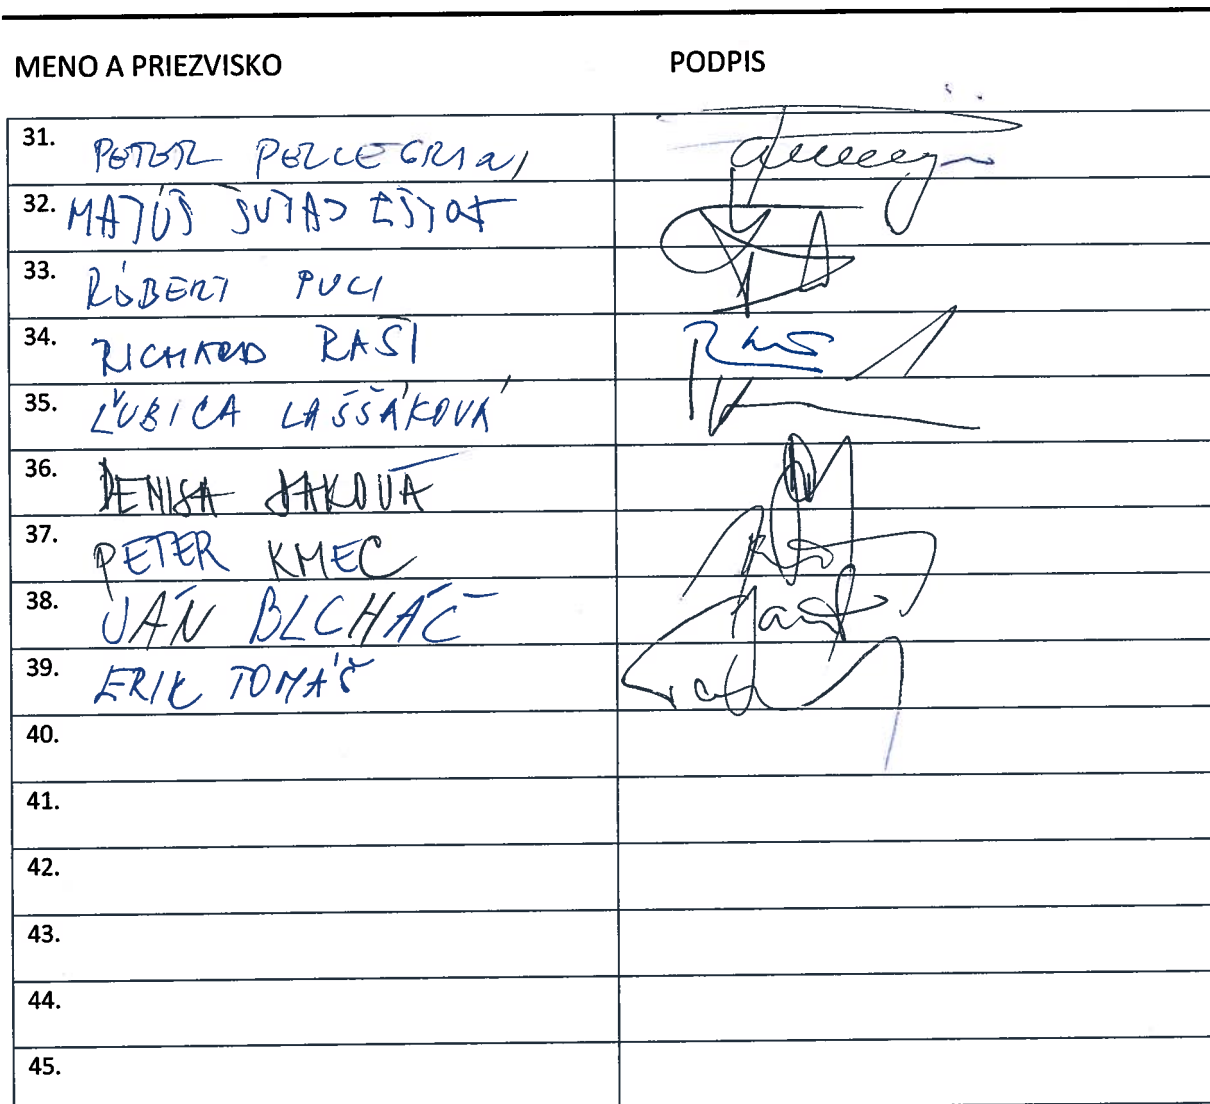 MENO A PRIEZVISKO PODPIS
31. PETER PELLEGRINI
32. MATÚŠ ŠUTAJ EŠTOK
33. RÓBERT PUCI
34. RICHARD RAŠI
35. ĽUBICA LAŠŠÁKOVÁ
36. DENISA SAKOVÁ
37. PETER KMEC
38. JÁN BLCHÁČ
39. ERIK TOMÁŠ
40.
41.
42.
43.
44.
45.